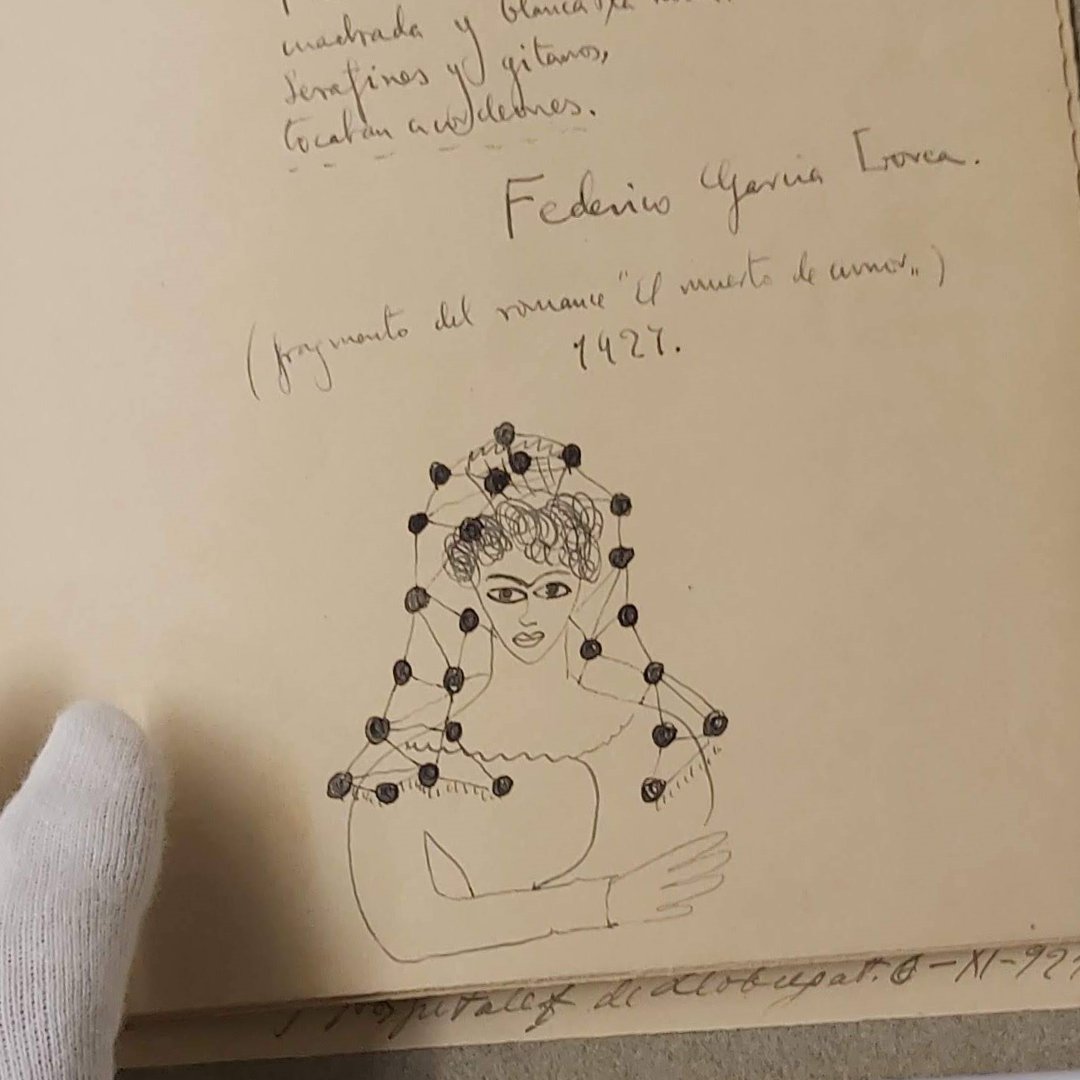 cuadrada y blanca
Serafines y gitanos,
tocaban acordeones.
Federico García Lorca.
(fragmento del romance "El muerto de amor„)
1927.
de Llobregat. 6-XI-927